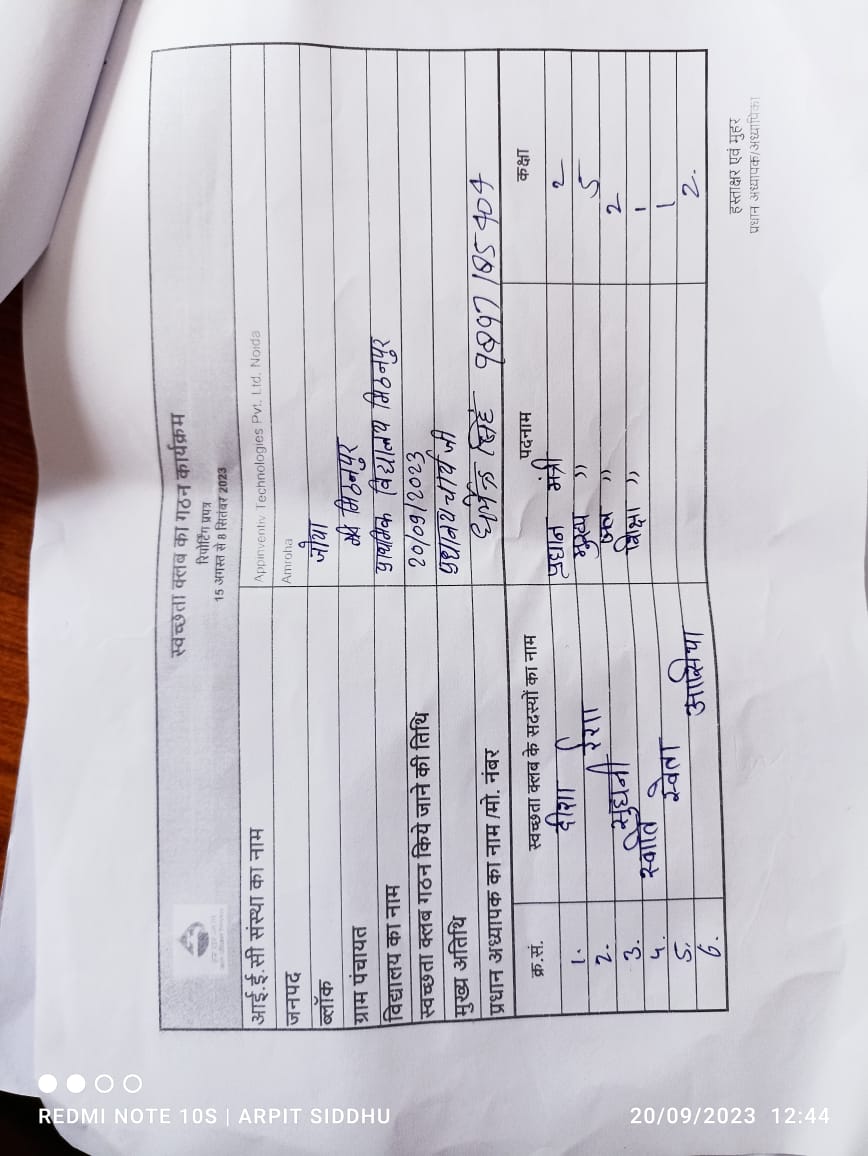 स्वच्छता क्लब का गठन कार्यक्रम
रिपोर्टिंग प्रपत्र
15 अगस्त से 8 सितंबर 2023
आई.ई.सी संस्था का नाम Appinventiv Technologies Pvt. Ltd. Noida
जनपद Amroha
ब्लॉक जोया
ग्राम पंचायत मिठनपुर
विद्यालय का नाम प्राथमिक विद्यालय मिठनपुर
स्वच्छता क्लब गठन किये जाने की तिथि 20/09/2023
मुख्य अतिथि प्रधानाचार्य जी
प्रधान अध्यापक का नाम /मो. नंबर सिंह
क्र.सं. स्वच्छता क्लब के सदस्यों का नाम पदनाम कक्षा
1. दीशा प्रधान मंत्री 2
2. मुख्य " 5
3. जल " 2
4. स्वाति शिक्षा " 1
5. श्वेता 1
6. आसिया 2.
हस्ताक्षर एवं मुहर
प्रधान अध्यापक/अध्यापिका
REDMI NOTE 10S | ARPIT SIDDHU
20/09/2023 12:44